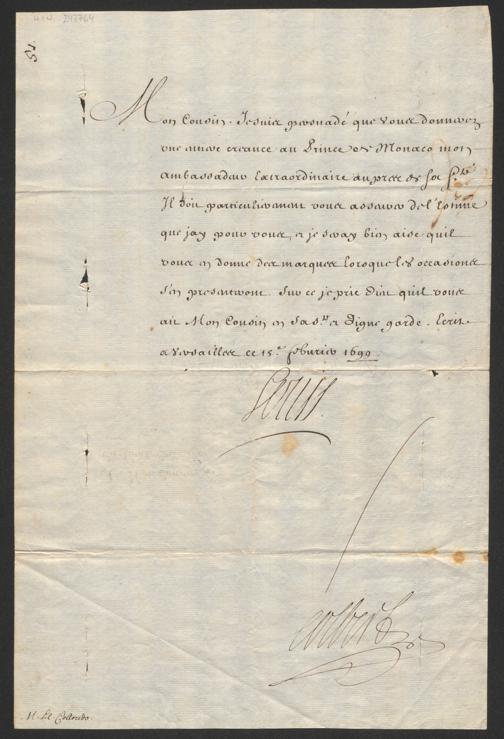 243764
51
Mon Cousin. Je suis persuadé que vous donnerez
une entiere creance au Prince de Monaco mon
ambassadeur Extraordinaire aupres de sa S.té
Il doit particulierement vous asseurer de l'estime
que jay pour vous, et je seray bien aise quil
vous en donne des marques lorsque les occasions
s'en presenteront. Sur ce je prie Dieu quil vous
ait Mon Cousin en sa s.te et digne garde. Ecrit
a Versailles ce 15.e febvrier 1699
Louis
Colbert
M. Le